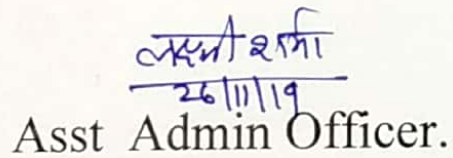 लक्ष्मी शर्मा
26/11/19
Asst Admin Officer.